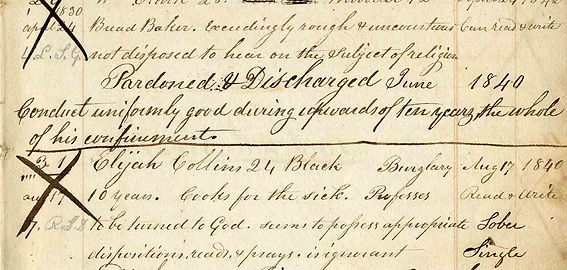 1830
april 24 Bread Baker. Exceedingly rough & uncourteous Can read & write
L.S.G. not disposed to hear on the subject of religion
Pardoned & Discharged June 1840
Conduct uniformly good during upwards of ten years, the whole
of his confinement.
1 Elijah Collins 24 Black Burglary Aug 17 1840
17 10 years. Cooks for the sick. Professes Read & Write
to be turned to God. seems to possess appropriate Sober
dispositions, reads, & prays. is ignorant Single